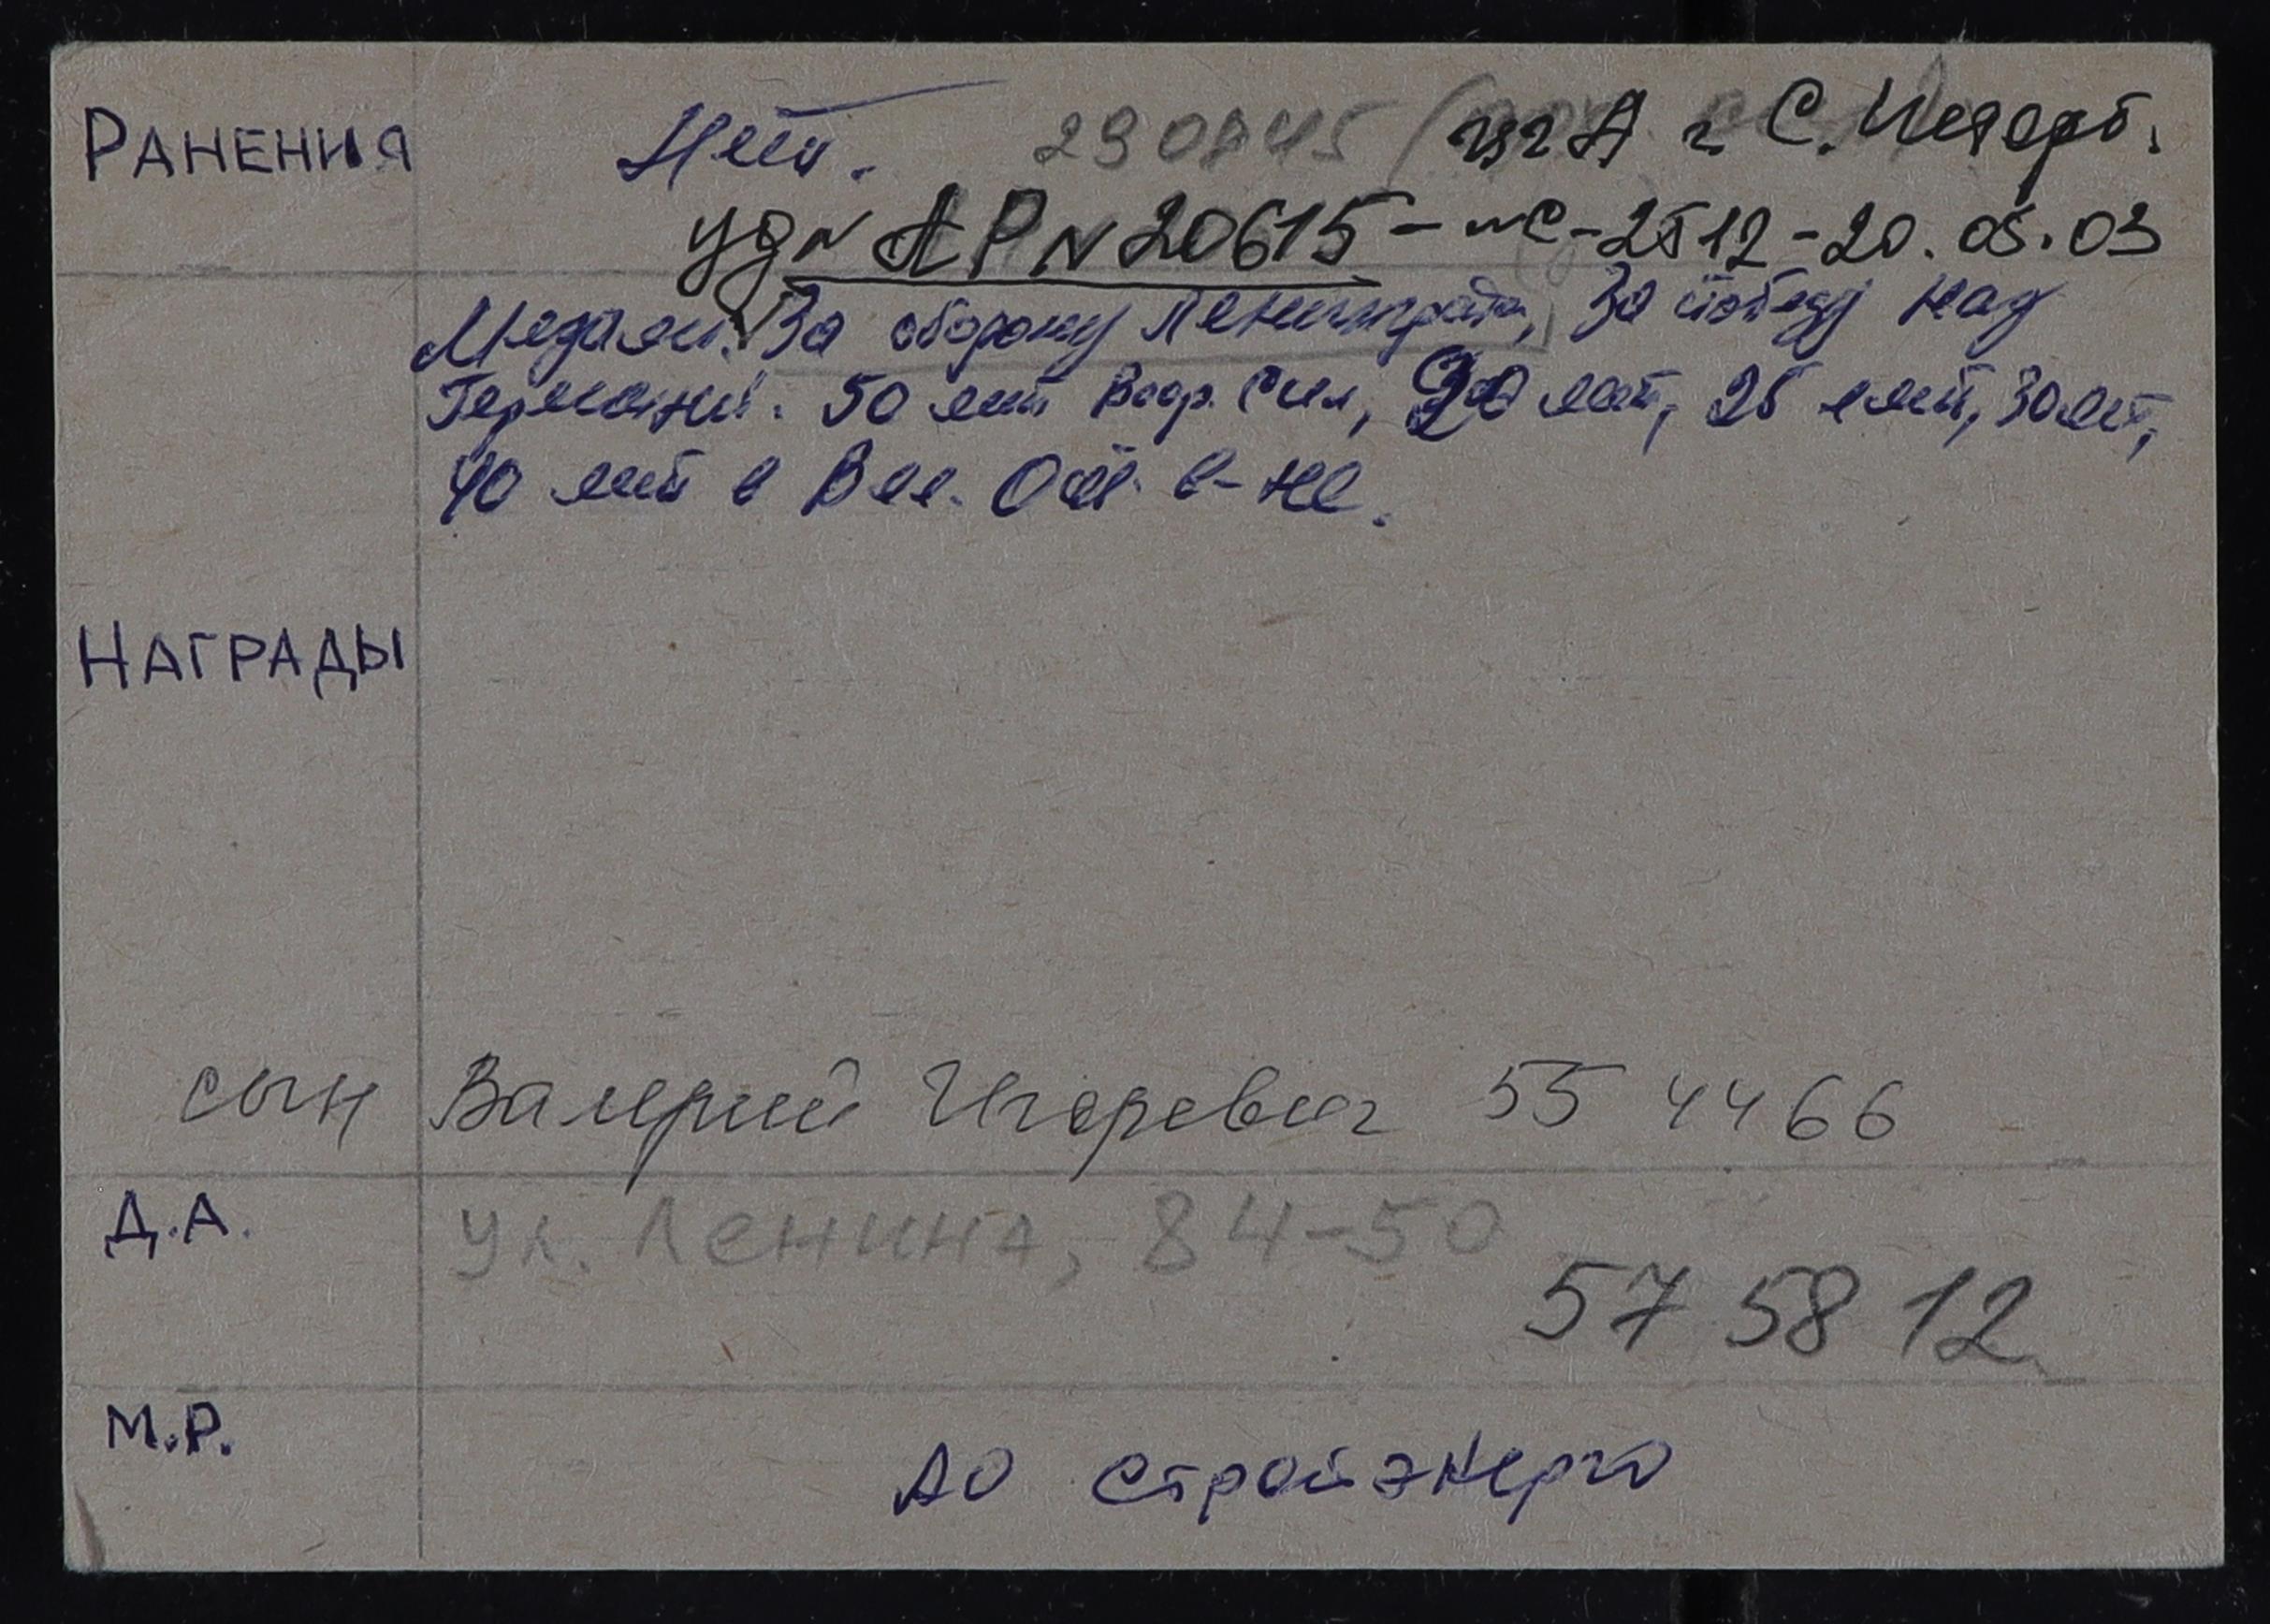 РАНЕНИЯ Нет. 290845 ЦГА г. С. Петерб.
удN АРN20615-с-2512-20.05.03
Медали: За оборону Ленинграда, За победу над
Германией. 50 лет Воор. Сил, 20 лет, 25 лет, 30 лет,
40 лет в Вел. От. в-не.
НАГРАДЫ
сын Валерий Игоревич 55 44 66
Д.А. ул. Ленина, 84-50
57 58 12
М.Р. АО Стройэнерго